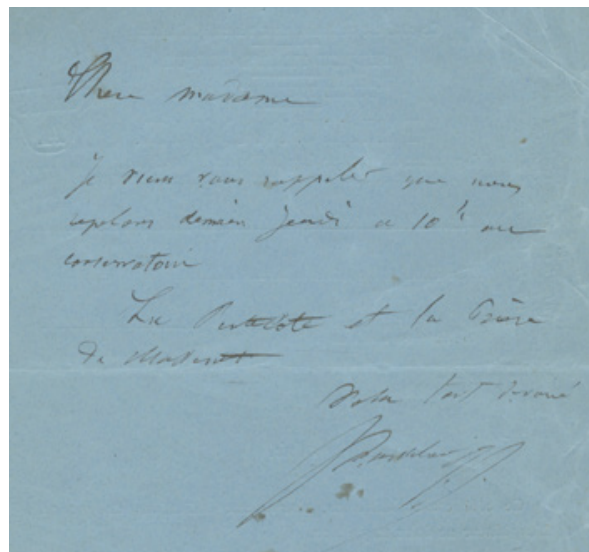 Chere madame
Je viens vous rappeler que nous
repetons demain jeudi a 10 h au
conservatoire
La Pentecôte et la Prière
de
Votre tout dévoué